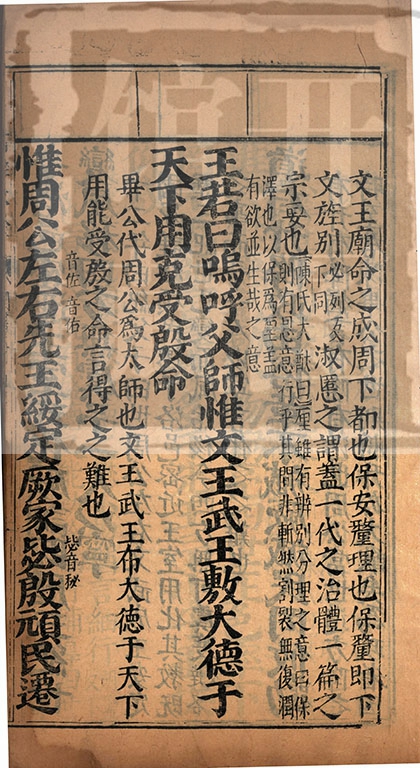 文王廟命之成周下都也保安釐理也保釐即下
文旌别必列反下同淑慝之謂蓋一代之治體一篇之
宗要也陳氏大猷曰釐雖有辨别分理之意曰保
則有恩意行乎其間非斬然割裂無復潤
澤也以保為釐蓋
有欲並生哉之意
王若曰嗚呼父師惟文王武王敷大德于
天下用克受殷命
畢公代周公為大師也文王武王布大德于天下
用能受殷之命言得之之難也
音佐 音佑 毖音秘
惟周公左右先王綏定厥家毖殷頑民遷